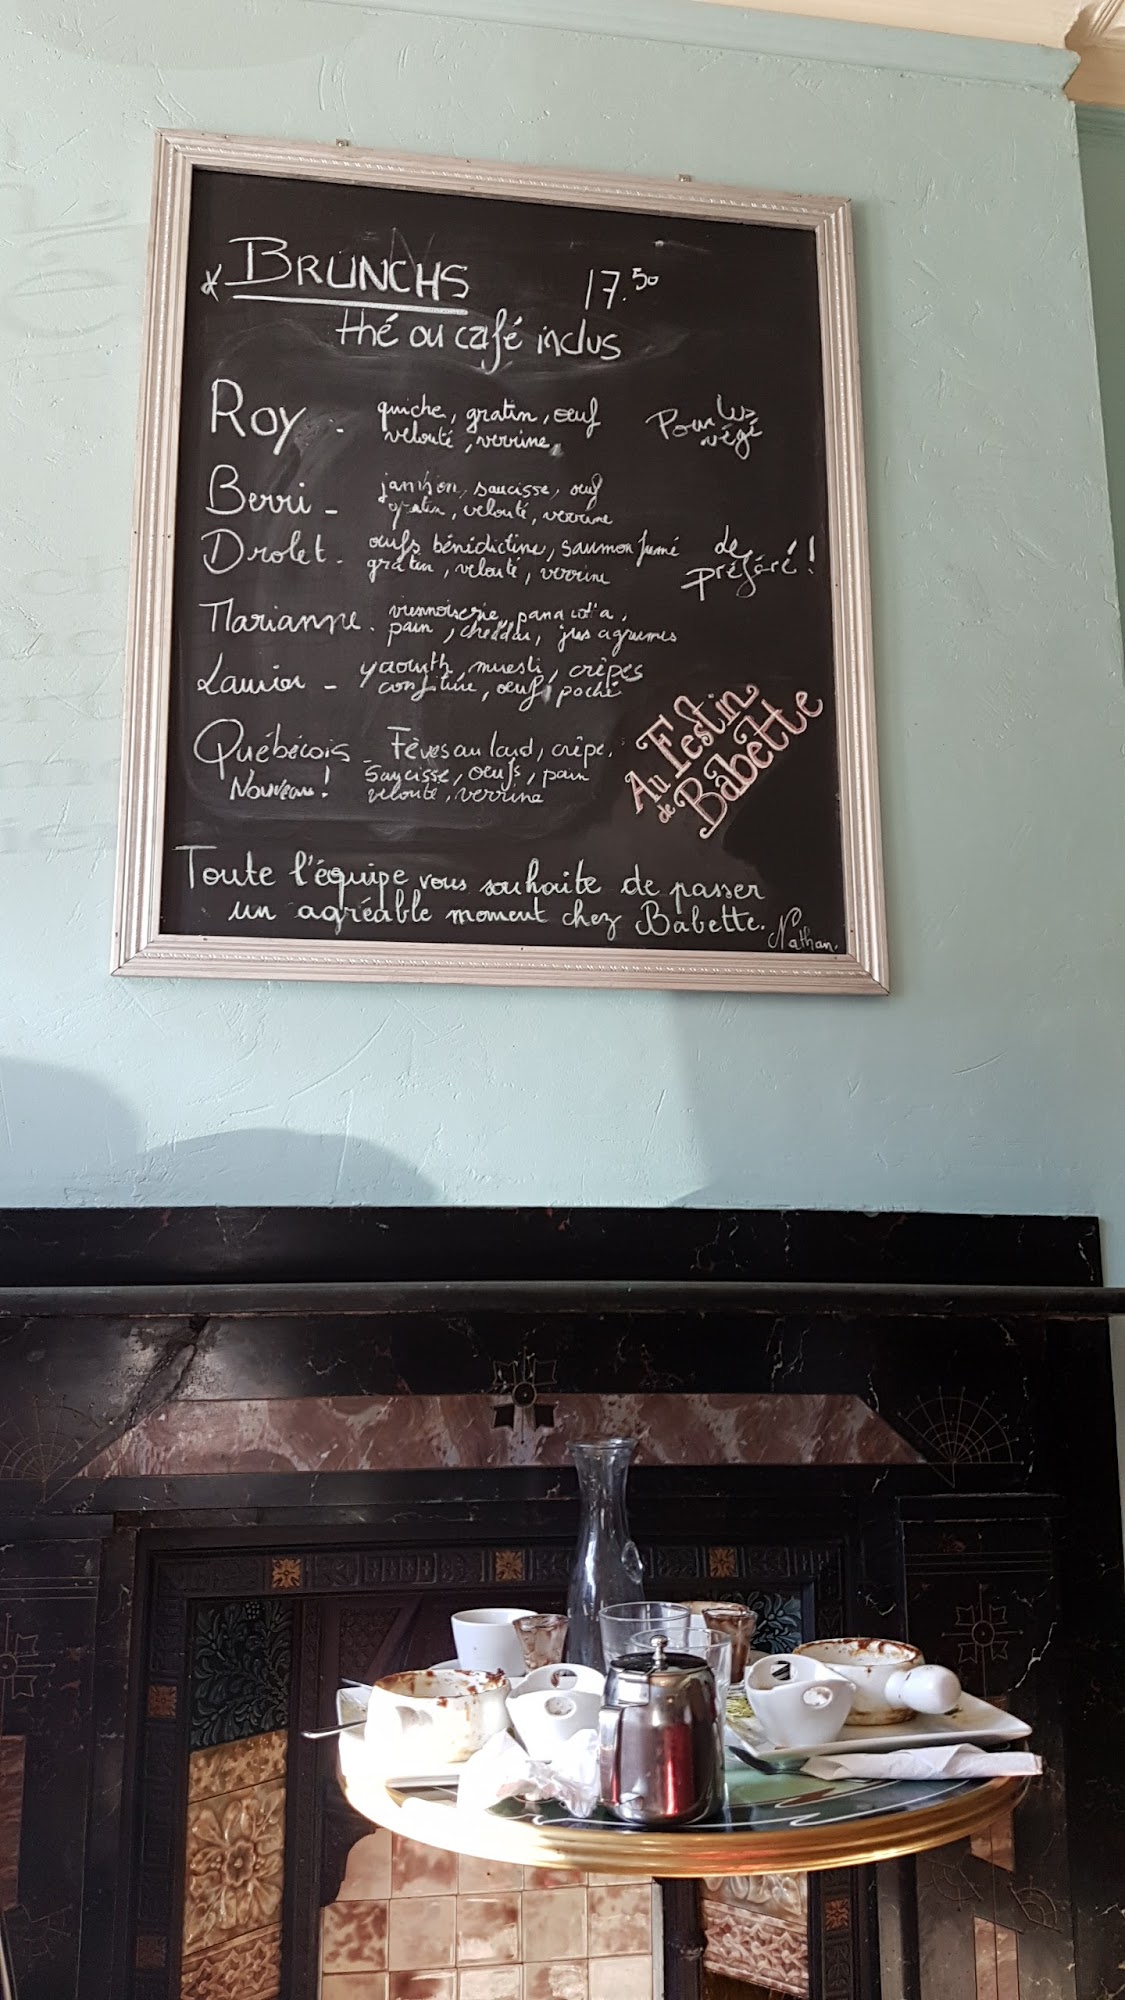 * BRUNCHS 17.50
thé ou café inclus
Roy - quiche, gratin, œuf
velouté, verrine
Pour les
végé
Berri - jambon, saucisse, œuf
gratin, velouté, verrine
Drolet - œufs bénédictine, saumon fumé
gratin, velouté, verrine
de
préféré !
Marianne - viennoiserie, pana cot'a,
pain, cheddar, jus agrumes
Laurier - yaourth, muesli, crêpes
confiture, œuf poché
Québécois - Fèves au lard, crêpe,
Nouveau! saucisse, œufs, pain
velouté, verrine
Au Festin
de Babette
Toute l'équipe vous souhaite de passer
un agréable moment chez Babette.
Nathan.